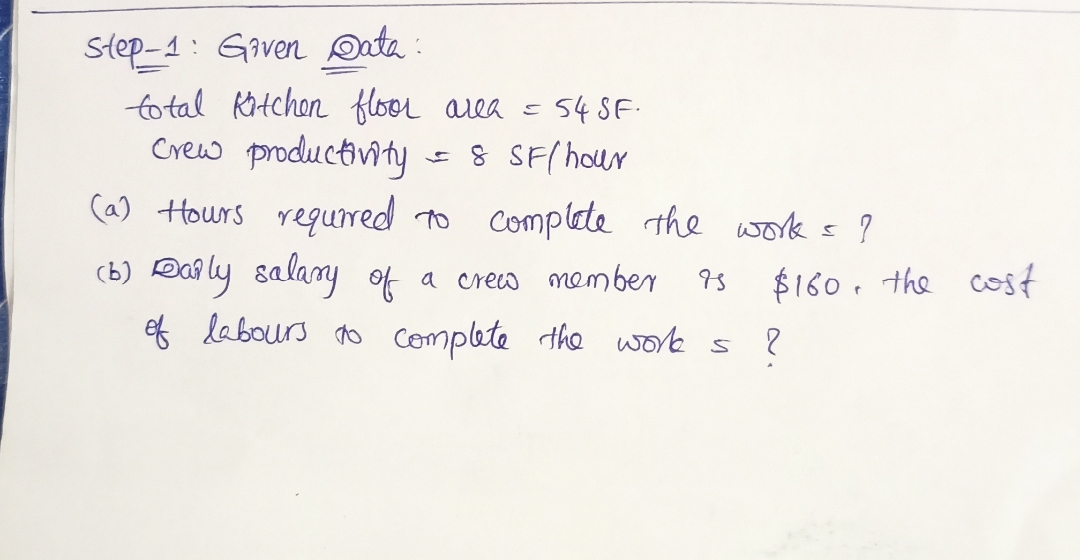 Step-1: Given Data:
total Kitchen floor area = 54 SF.
Crew productivity = 8 SF/hour
(a) Hours required to complete the work = ?
(b) Daily salary of a crew member is $160. the cost
of labours to complete the work = ?